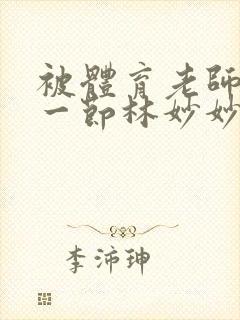 被體育老師
一節林妙妙
李沛珅